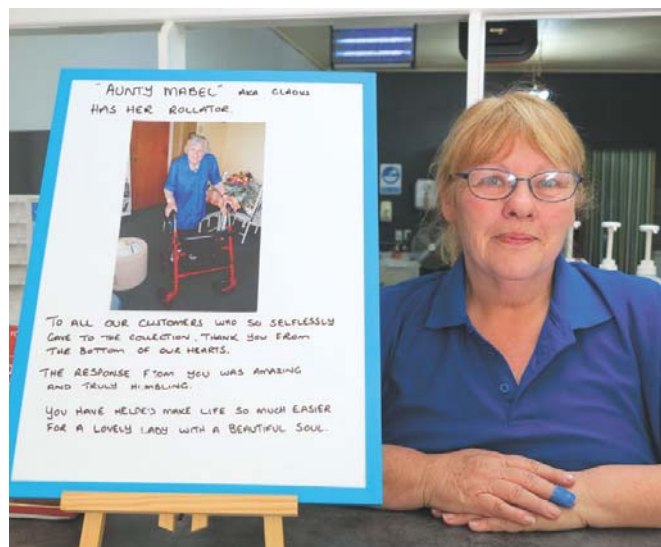 "AUNTY MABEL" AKA GLADYS
HAS HER ROLLATOR.
TO ALL OUR CUSTOMERS WHO SO SELFLESSLY
GAVE TO THE COLLECTION, THANK YOU FROM
THE BOTTOM OF OUR HEARTS.
THE RESPONSE FROM YOU WAS AMAZING
AND TRULY HUMBLING.
YOU HAVE HELPED MAKE LIFE SO MUCH EASIER
FOR A LOVELY LADY WITH A BEAUTIFUL SOUL.